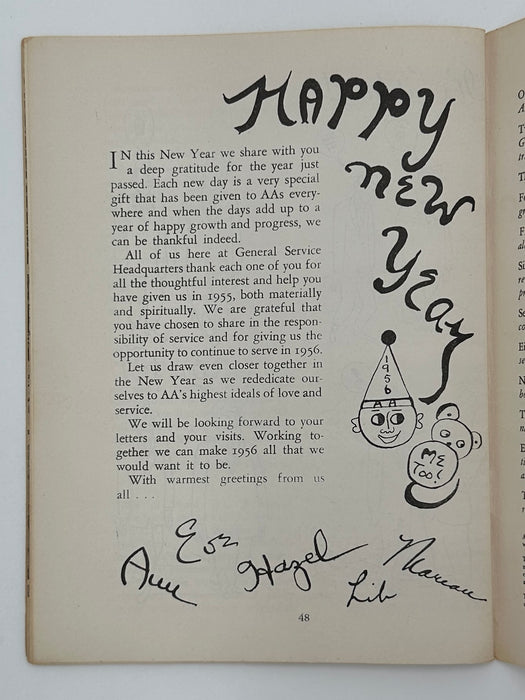 HAPPY
NEW
YEAR
IN this New Year we share with you
a deep gratitude for the year just
passed. Each new day is a very special
gift that has been given to AAs every-
where and when the days add up to a
year of happy growth and progress, we
can be thankful indeed.
All of us here at General Service
Headquarters thank each one of you for
all the thoughtful interest and help you
have given us in 1955, both materially
and spiritually. We are grateful that
you have chosen to share in the respon-
sibility of service and for giving us the
opportunity to continue to serve in 1956.
Let us draw even closer together in
the New Year as we rededicate our-
selves to AA's highest ideals of love and
service.
We will be looking forward to your
letters and your visits. Working to-
gether we can make 1956 all that we
would want it to be.
With warmest greetings from us
all . . .
1956
AA
ME
TOO!
Ann
Eve
Hazel
Lib
48